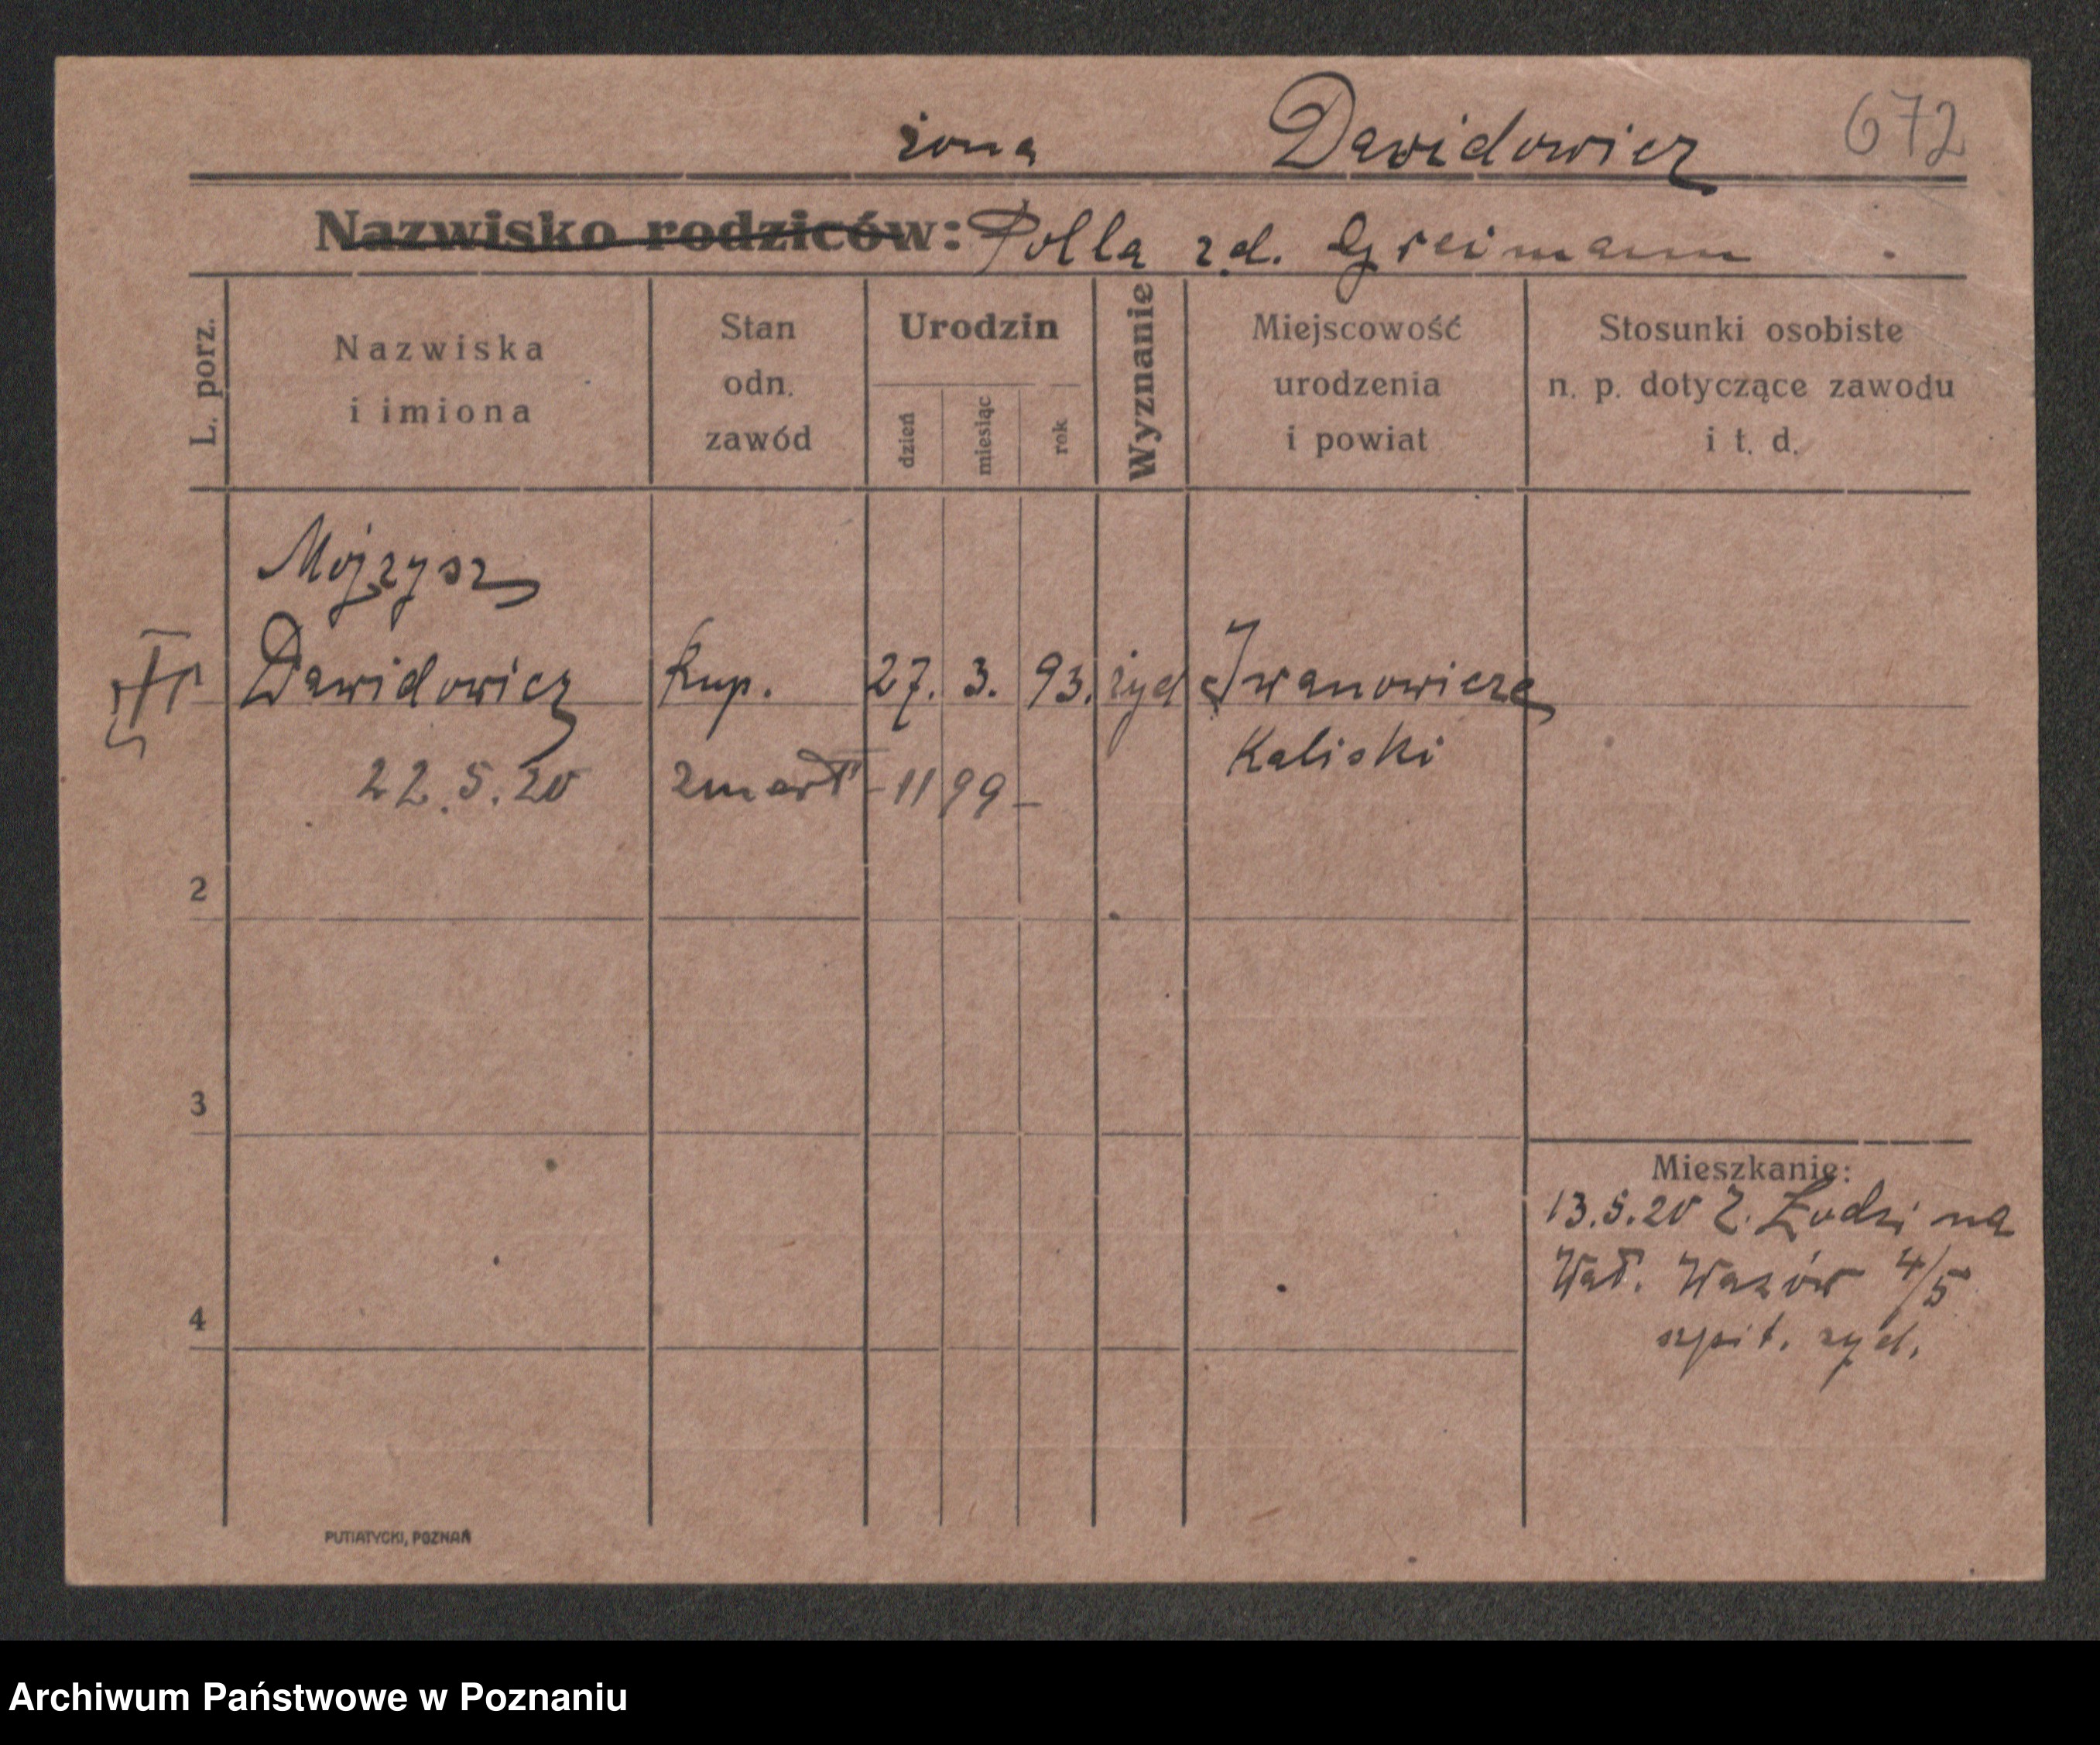 żona Dawidowicz 672
Nazwisko rodziców: Polla z d. Greimann
L. porz.
Nazwiska
i imiona
Stan
odn.
zawód
Urodzin
dzień
miesiąc
rok
Wyznanie
Miejscowość
urodzenia
i powiat
Stosunki osobiste
n. p. dotyczące zawodu
i t. d.
Mojzysz
Dawidowicz kup. 27. 3. 93. żyd Iwanowicze
Kaliski
22.5.20 zmarł - 1199 -
2
3
4
Mieszkanie:
13.5.20 Z. Łodzi na
Wał. Wazów 4/5
szpit. żyd.
PUTIATYCKI, POZNAŃ
Archiwum Państwowe w Poznaniu